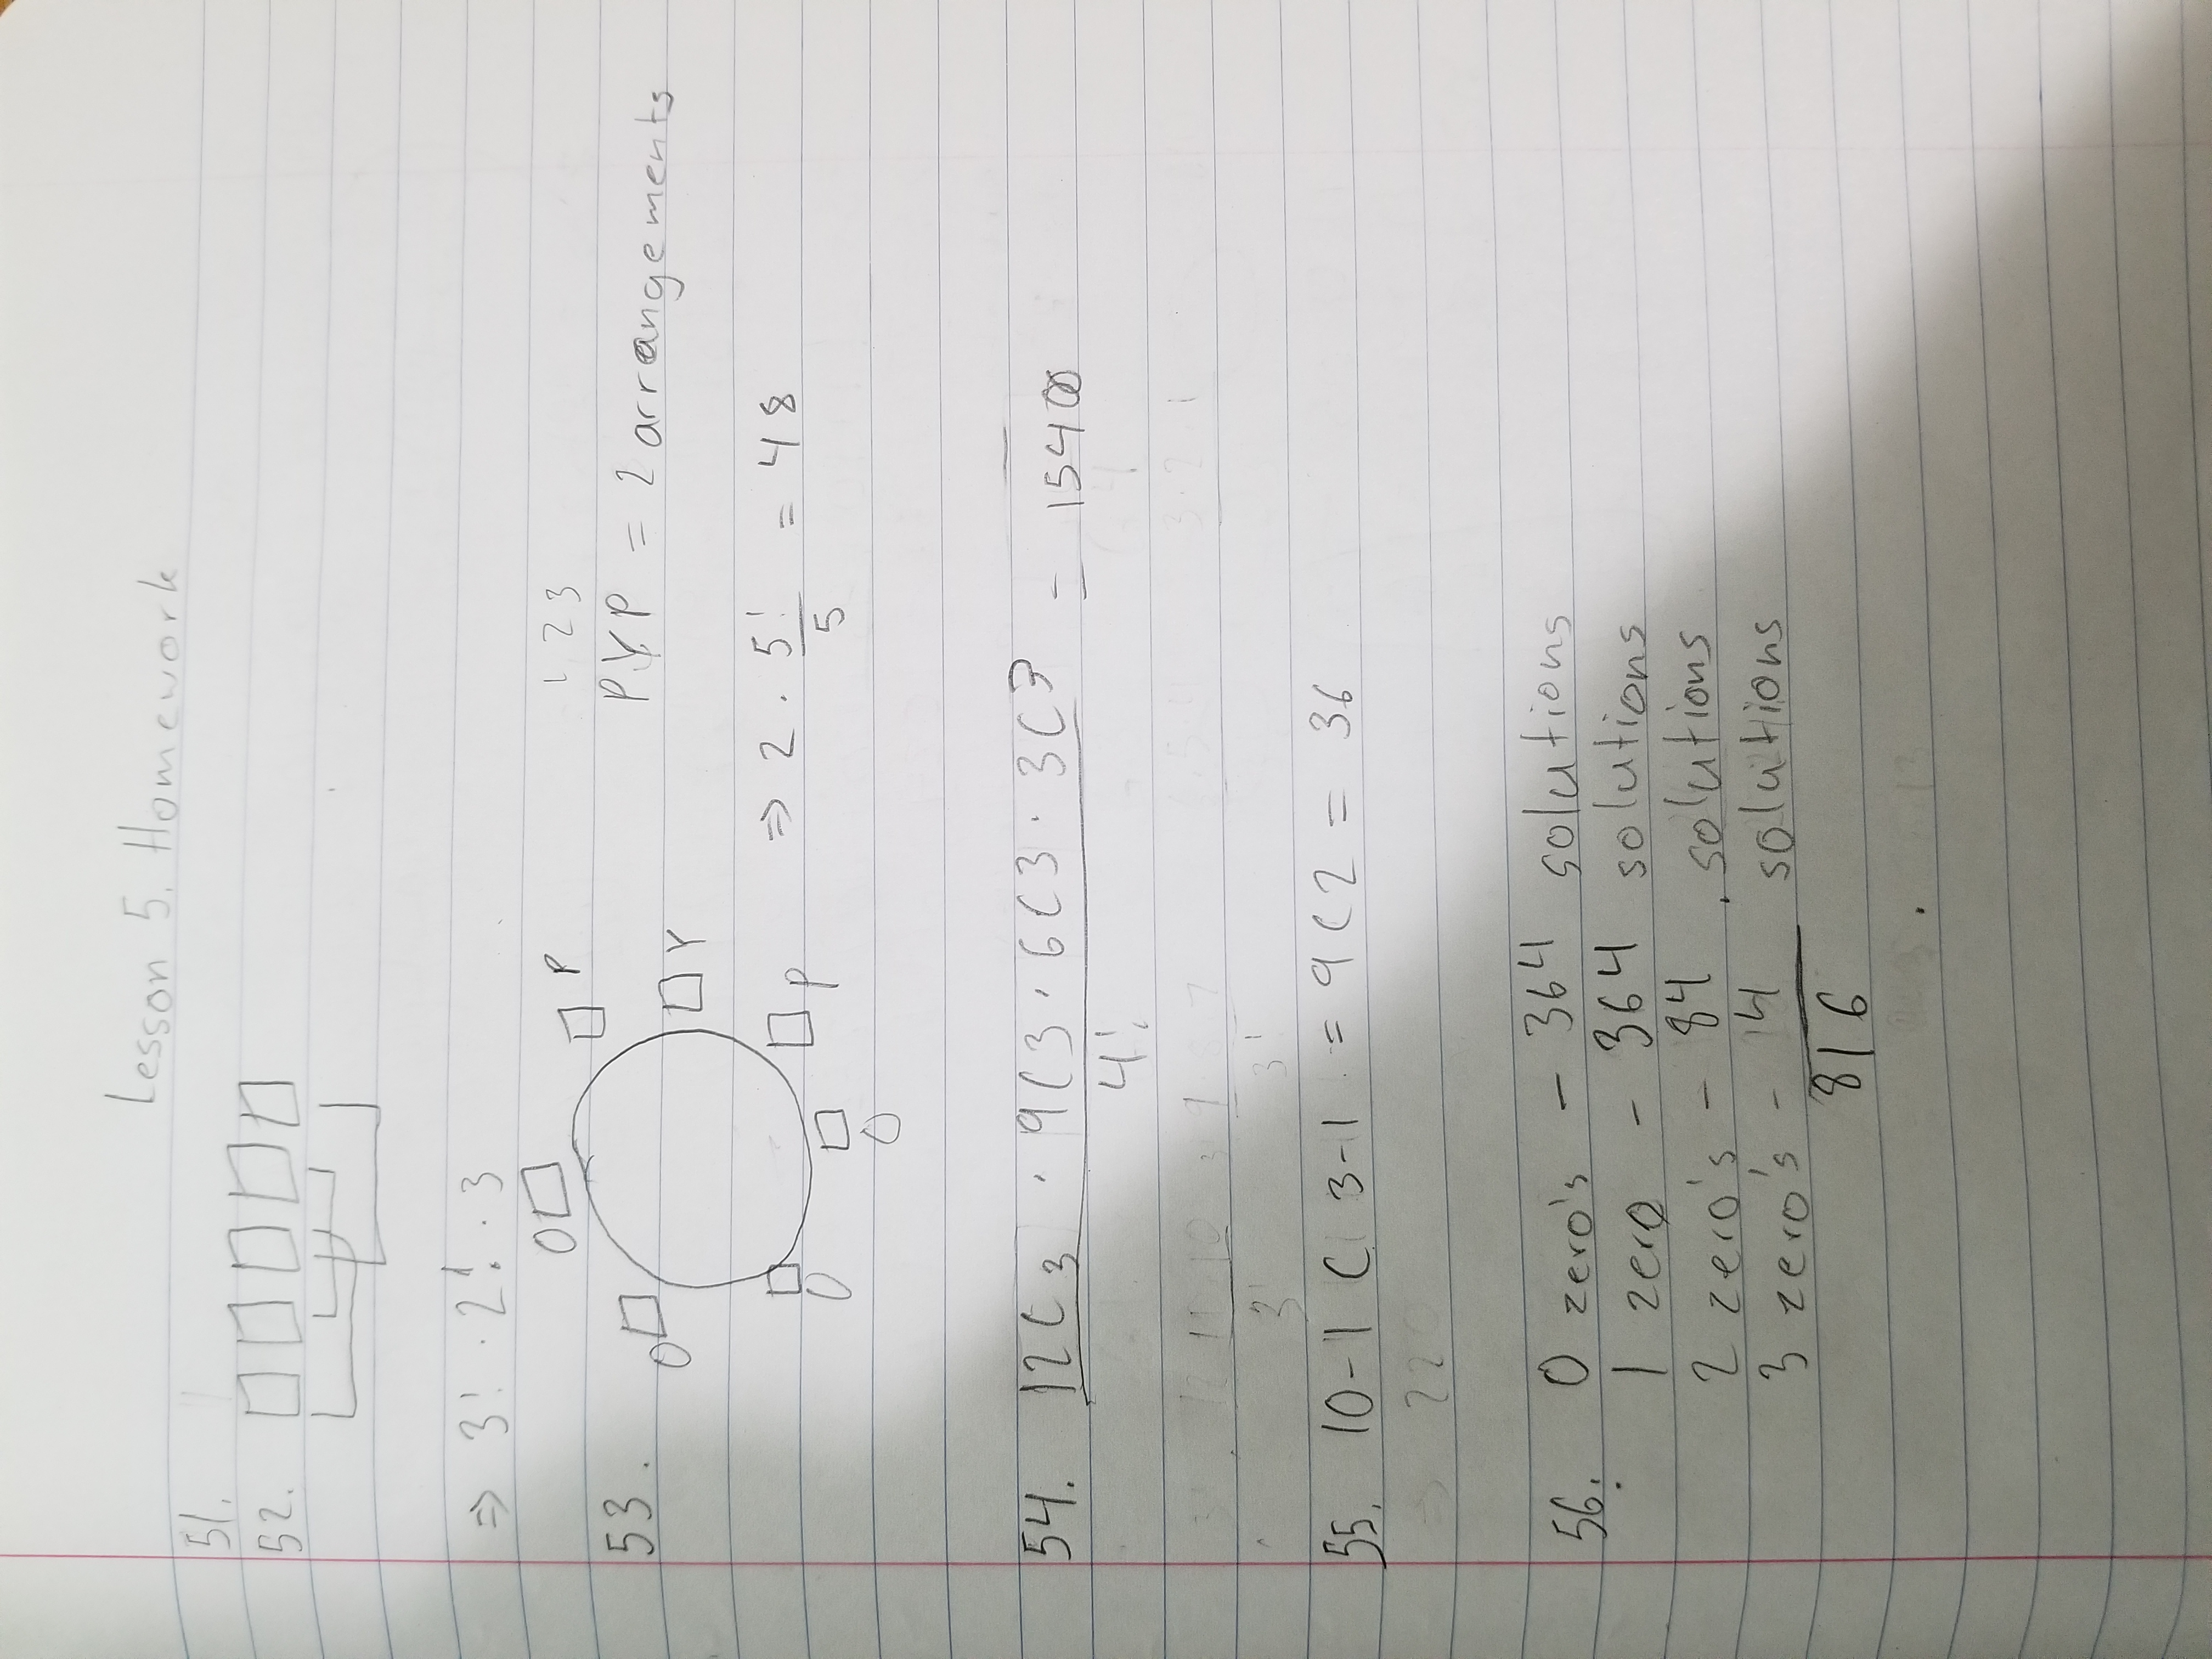 Lesson 5. Homework
51.
52.
⇒ 3! · 2! · 3
53.
O P
O Y
O P
O
1 2 3
PYP = 2 arrangements
⇒ 2 · 5!/5 = 48
54. 12C3 · 9C3 · 6C3 · 3C3 / 4! = 15400
3! 3!
55. 10-1 C 3-1 = 9C2 = 36
⇒ 220
56. 0 zero's - 364 solutions
1 zero - 364 solutions
2 zero's - 84 solutions
3 zero's - 4 solutions
816